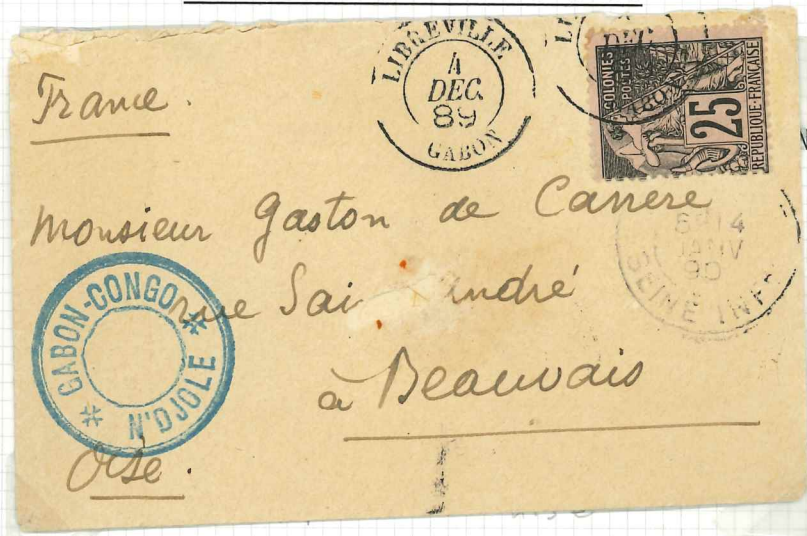 France.
LIBREVILLE
4
DEC.
89
GABON
DEC
COLONIES
POSTES
25
REPUBLIQUE-FRANÇAISE
Monsieur Gaston de Carrere
14
JANV
90
SEINE INF
rue Sai André
GABON-CONGO
N'DJOLE
à Beauvais
Oise.